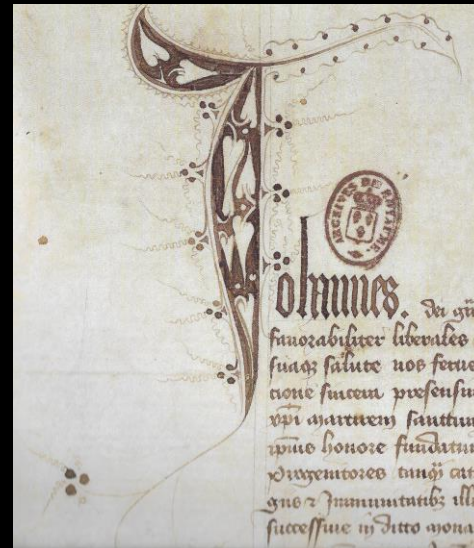 ARCHIVES DU ROYAUME
Johannes. dei gra
fauorabiliter liberales
suaq salute nos
cione presensiu
xpi martirem sanctum
ipius honore fundatum
progenitores tanq cat
gns 7 Immunitatibz ill
successiue in dicto mona